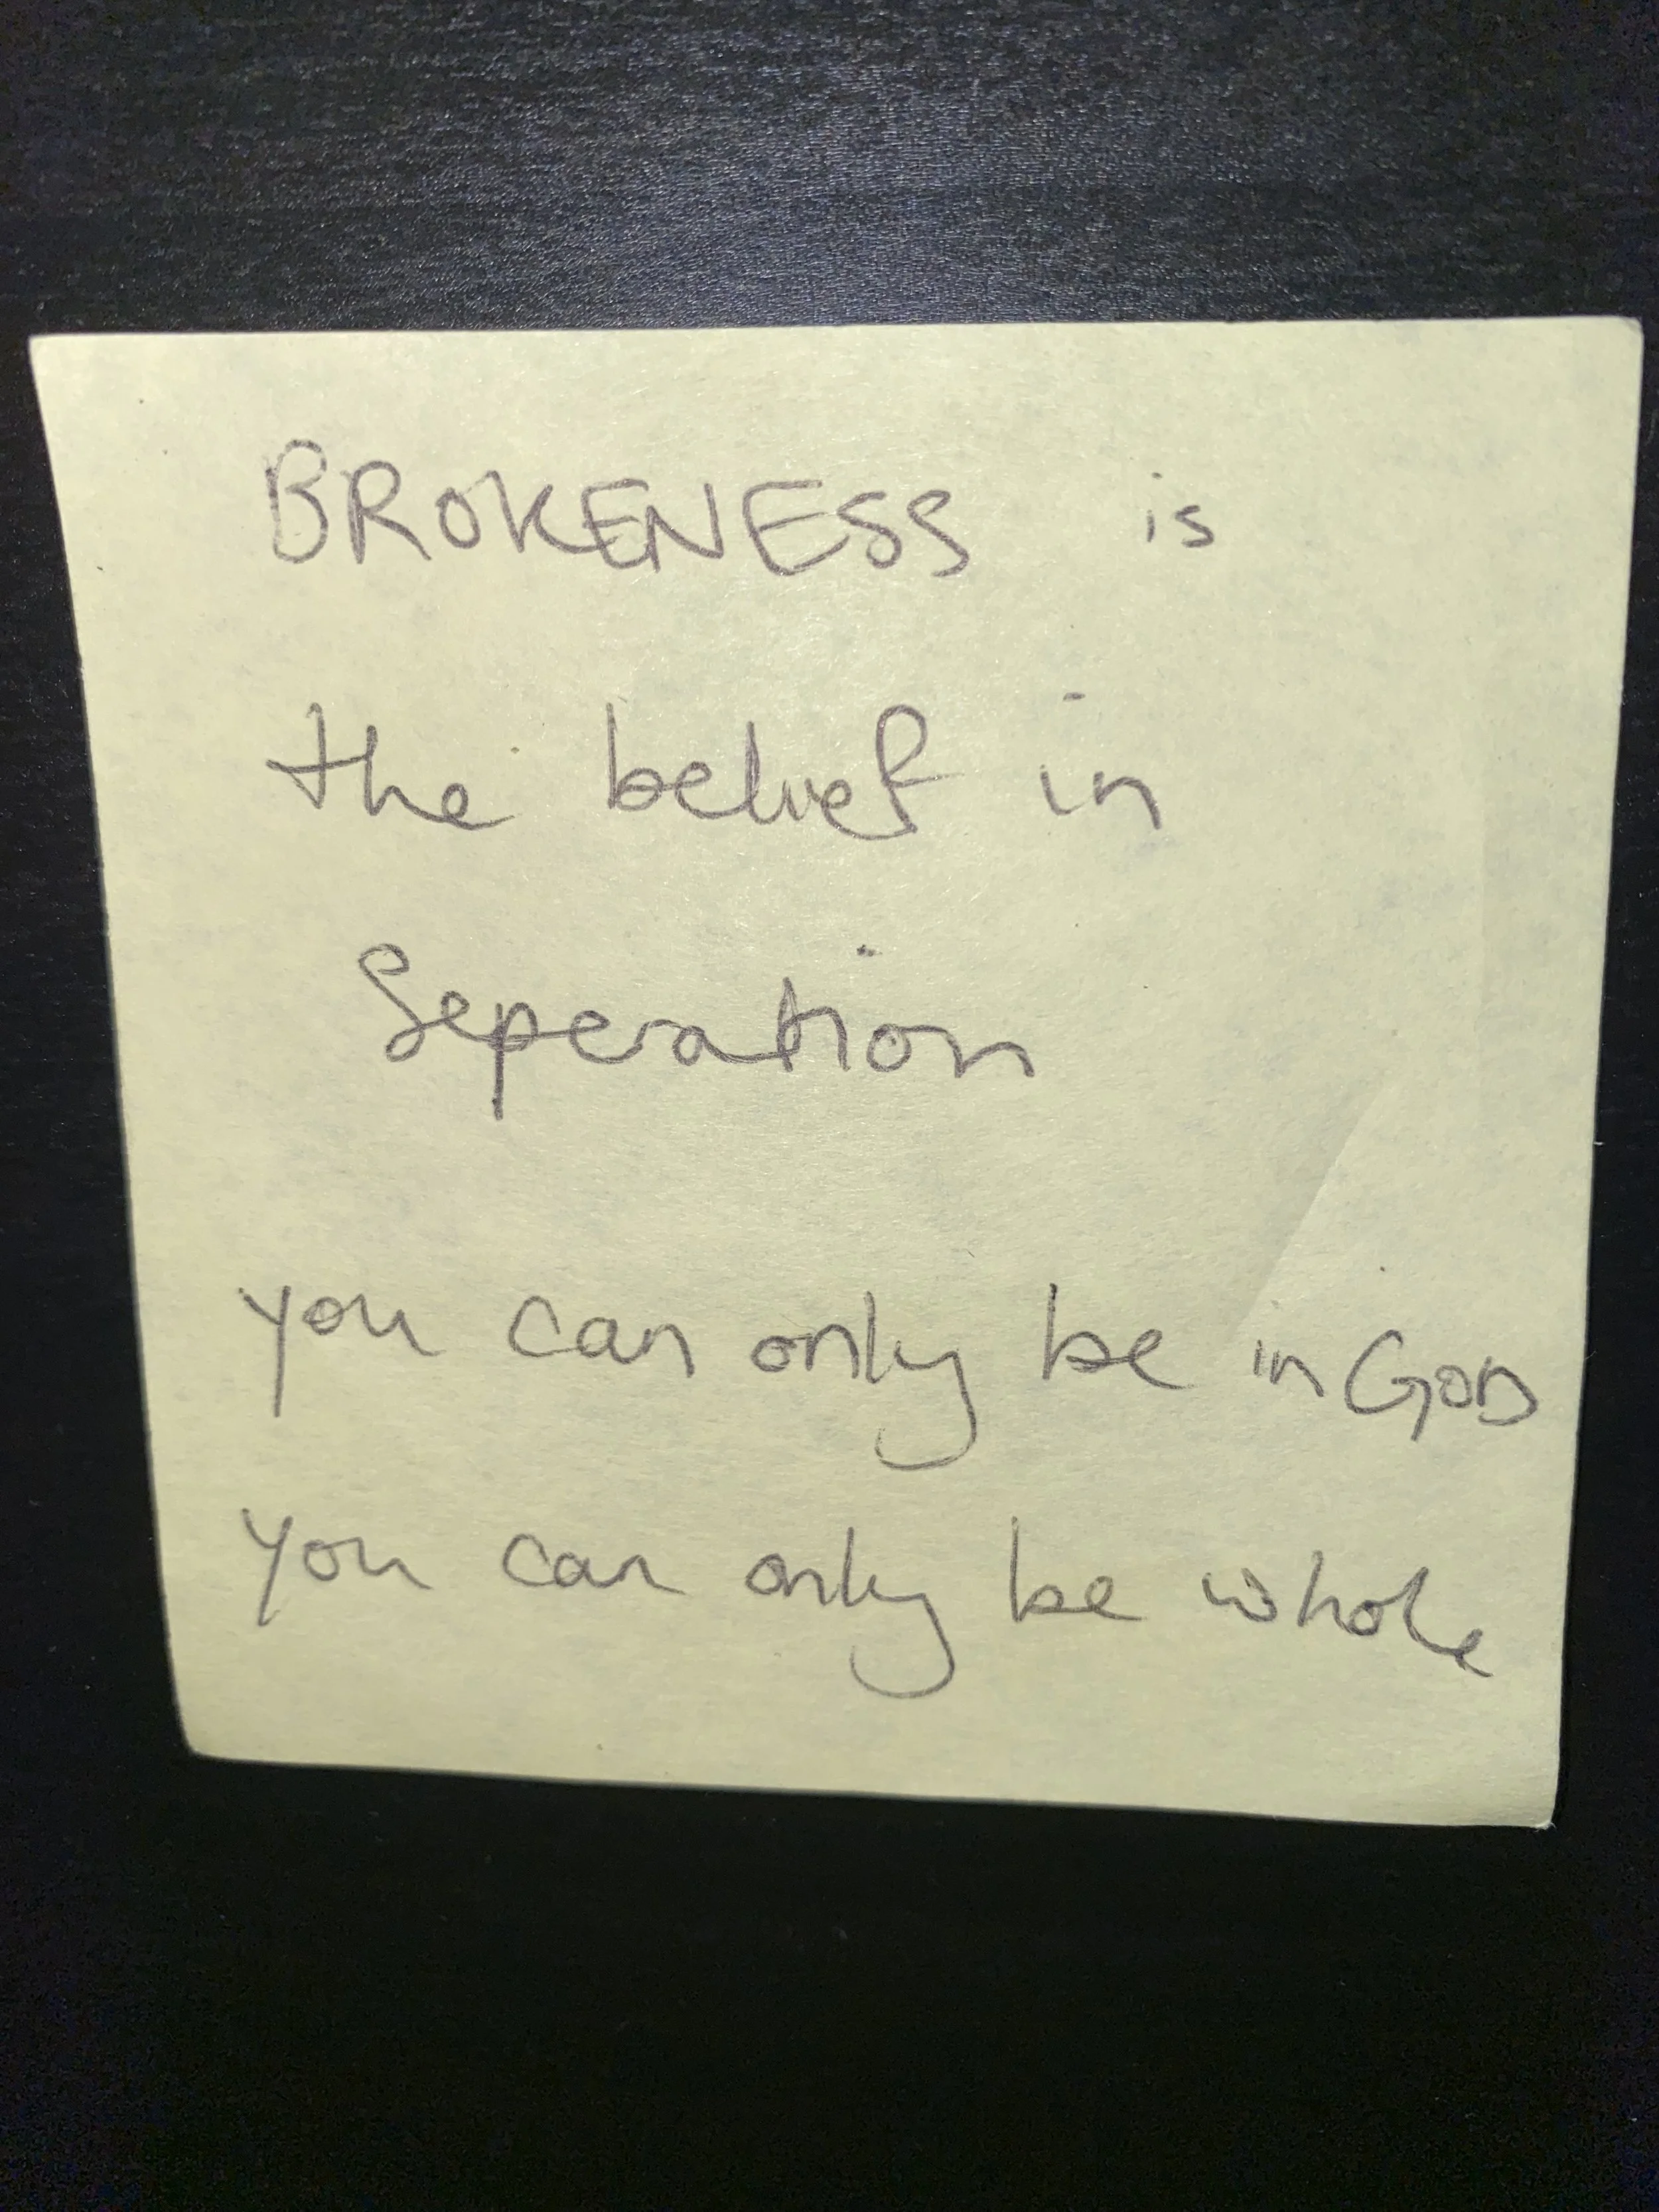 BROKENESS is
the belief in
Seperation
you can only be in GOD
you can only be whole